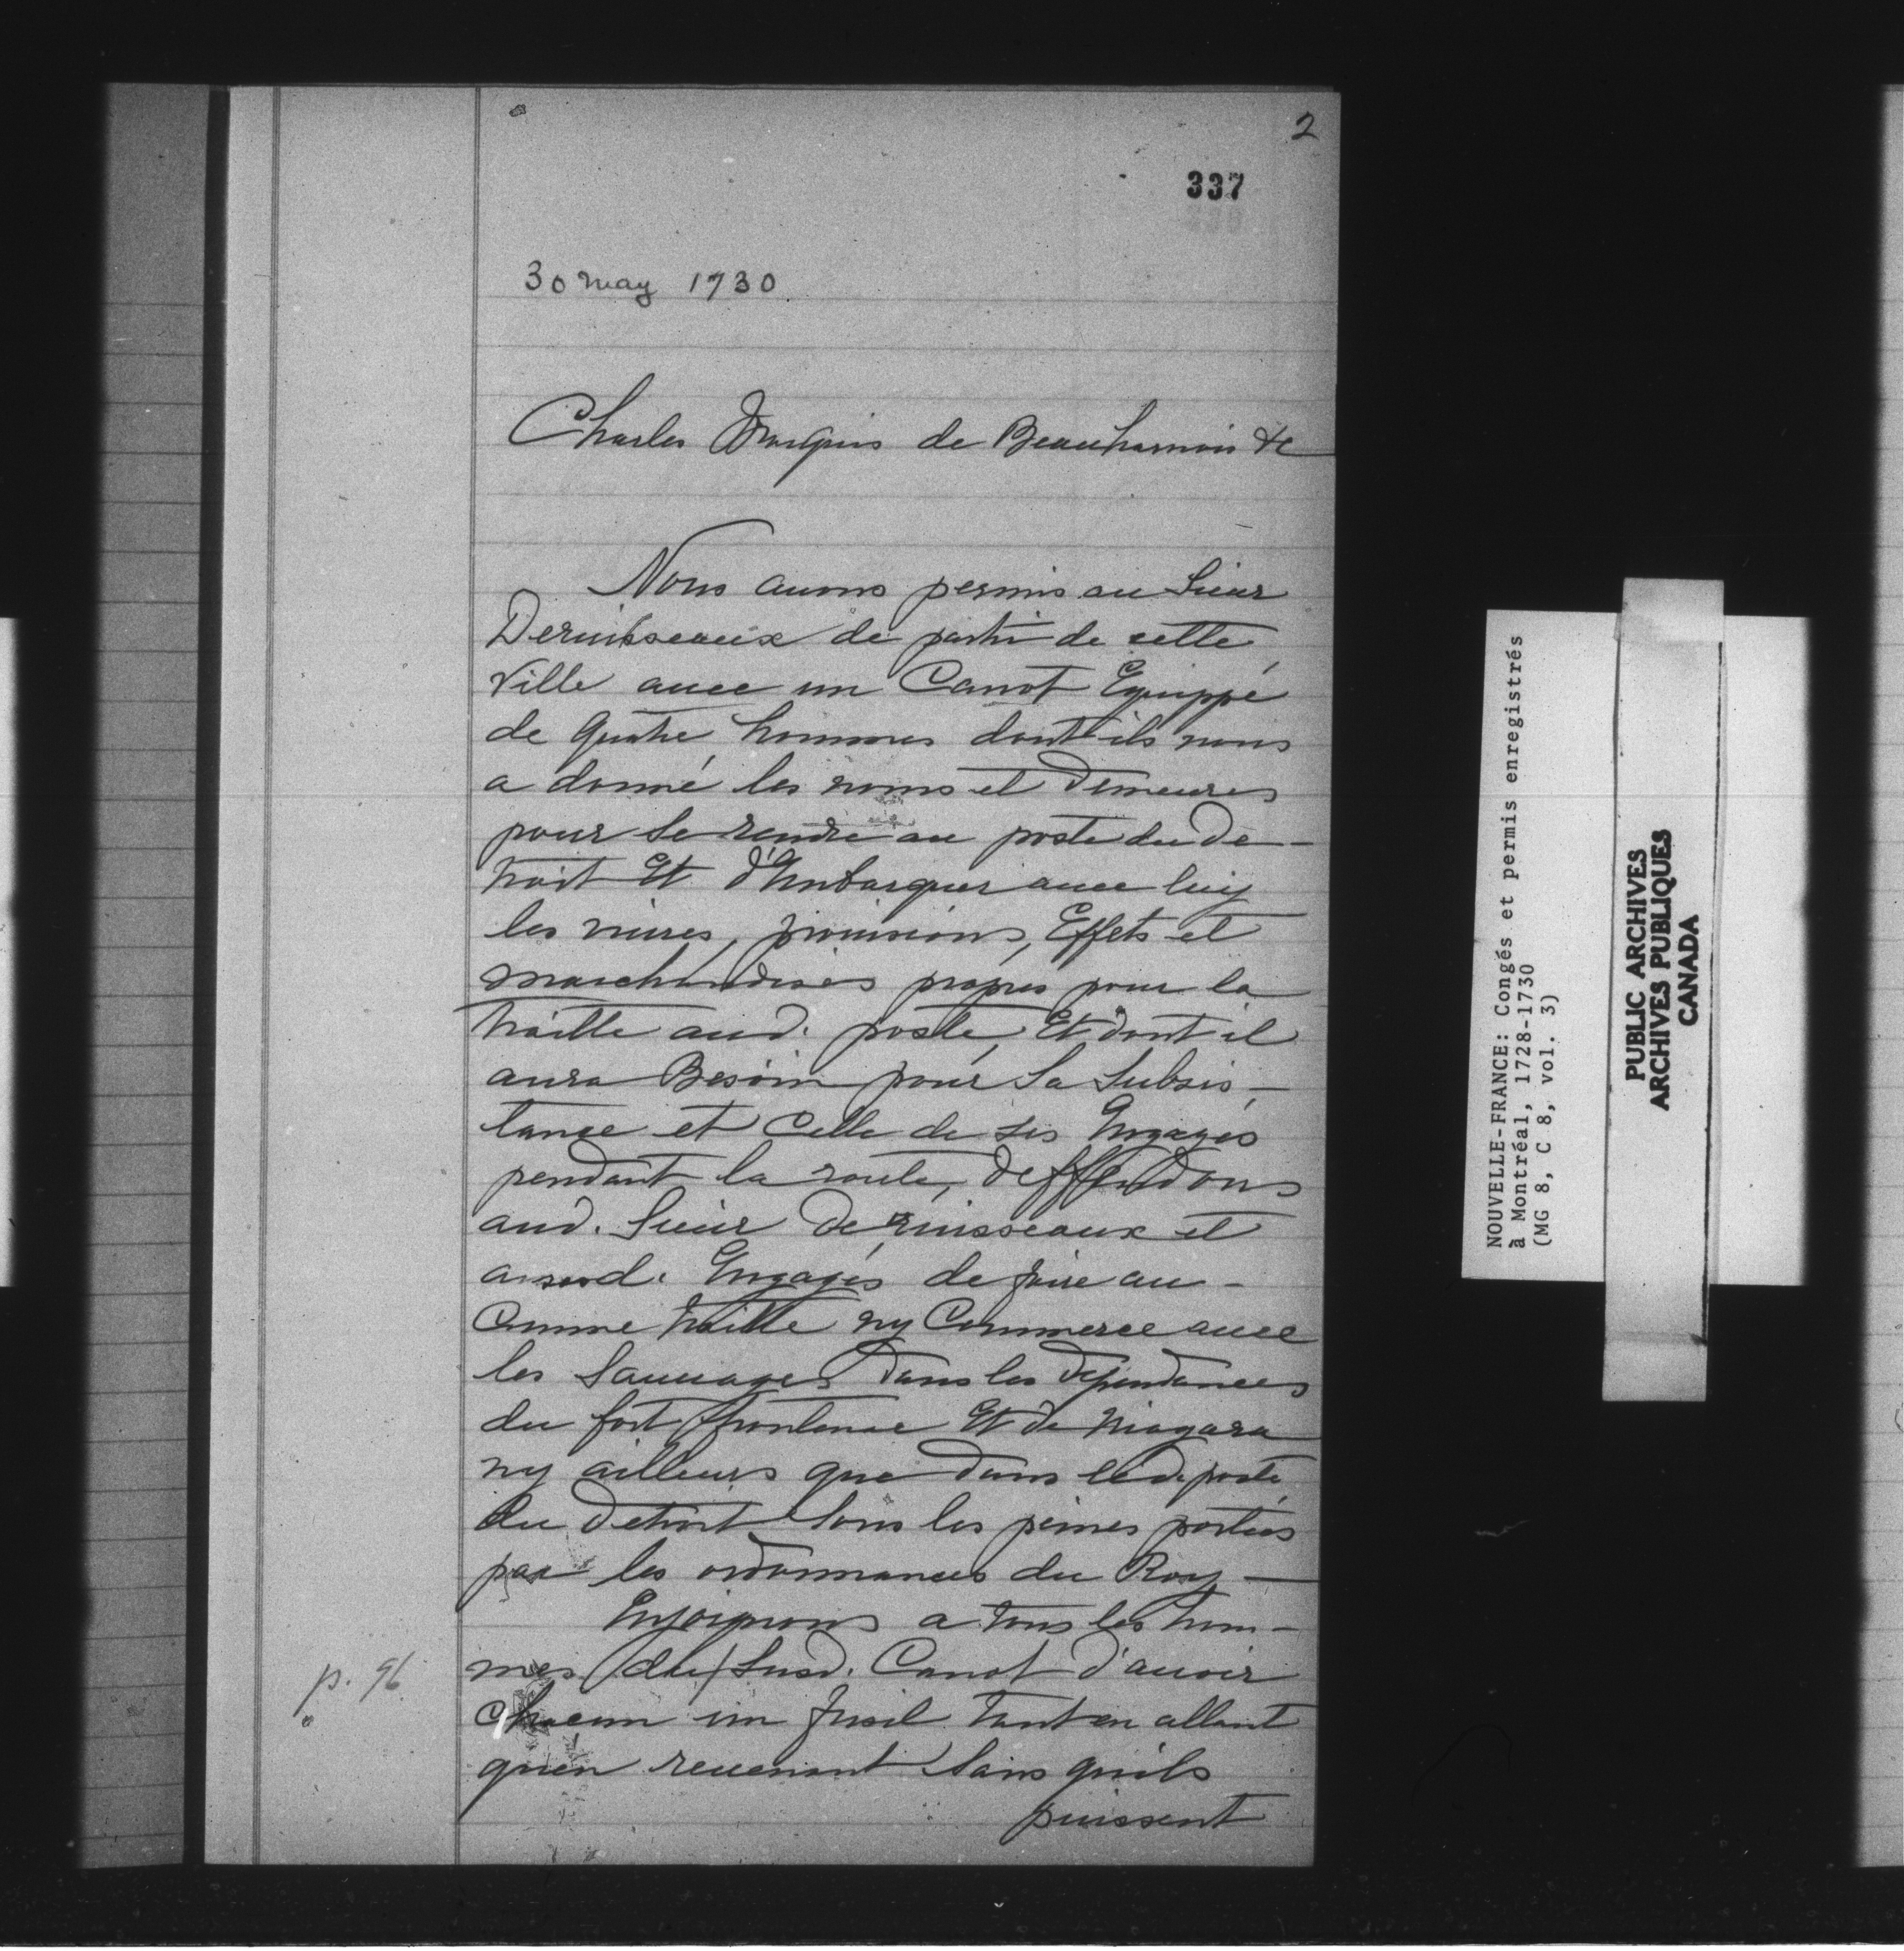 2
337
30 may 1730
Charles Marquis de Beauharnois &c
Nous auons permis au Sieur
Deruisseaux de partir de cette
ville auec un Canot Equippé
de quatre hommes dont ils nous
a donné les noms et demeures
pour se rendre au poste du de-
troit Et d'Embarquer auec luy
les viures, prouisions, Effets et
marchandises propres pour la
traitte aud. poste, Et dont il
aura Besoin pour sa subsis-
tance et Celle de ses Engagés
pendant la route, deffendons
aud. Sieur deruisseaux et
a sesd. Engagés de faire au-
Cunne traitte ny Commerce auec
les Sauuages dans les dépendances
du fort frontenac Et de Niagara
ny ailleurs que dans led. poste
du detroit sous les peines portées
par les ordonnances du Roy —
Enjoignons a tous les hom-
mes du susd. Canot d'auoir
Chacun un fusil tant en allant
qu'en reuenant sans quils
puissent
p. 96
NOUVELLE-FRANCE: Congés et permis enregistrés
à Montréal, 1728-1730
(MG 8, C 8, vol. 3)
PUBLIC ARCHIVES
ARCHIVES PUBLIQUES
CANADA